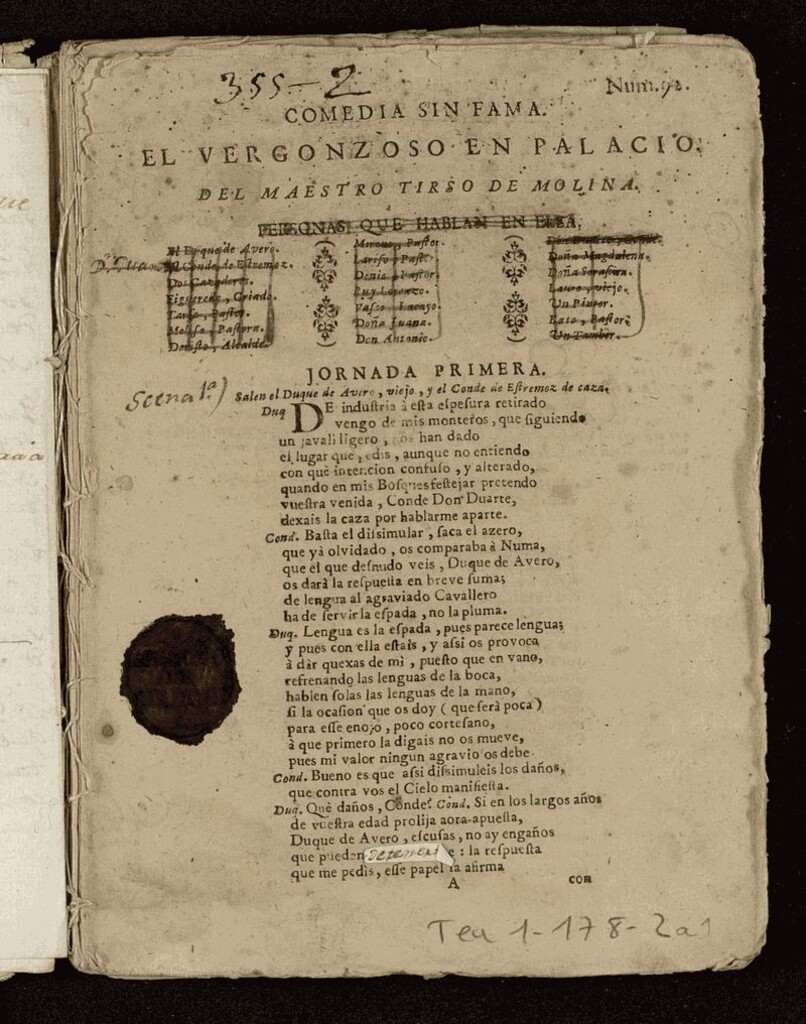 355-2
Num. 92.
COMEDIA SIN FAMA.
EL VERGONZOSO EN PALACIO.
DEL MAESTRO TIRSO DE MOLINA.
PERSONAS QUE HABLAN EN ELLA.
El Duque de Avero.
El Conde de Estremoz.
Dos Cazadores.
Figueredo, Criado.
Tarso, Pastor.
Melisa, Pastora.
Doristo, Alcalde.
Mireno, Pastor.
Lariso, Pastor.
Denio, Pastor.
Ruy Lorenzo.
Vasco, Lacayo.
Doña Juana.
Don Antonio.
Doña Magdalena.
Doña Serafina.
Lauro, viejo.
Un Pintor.
Bato, Pastor.
Un Tambor.
JORNADA PRIMERA.
Scena 1ª)
Salen el Duque de Avero, viejo, y el Conde de Eſtremoz de caza.
Duq DE induſtria à eſta eſpeſura retirado
vengo de mis monteros, que ſiguiendo
un javali ligero, nos han dado
el lugar que pedis, aunque no entiendo
con què intencion confuſo, y alterado,
quando en mis Boſques feſtejar pretendo
vueſtra venida, Conde Don Duarte,
dexais la caza por hablarme aparte.
Cond. Baſta el diſsimular, ſaca el azero,
que yà olvidado, os comparaba à Numa,
que el que deſnudo veis, Duque de Avero,
os darà la reſpueſta en breve ſuma;
de lengua al agraviado Cavallero
ha de ſervir la eſpada, no la pluma.
Duq. Lengua es la eſpada, pues parece lengua;
y pues con ella eſtais, y aſsi os provoca
à dàr quexas de mi, pueſto que en vano,
refrenando las lenguas de la boca,
hablen ſolas las lenguas de la mano,
ſi la ocaſion que os doy (que ſerà poca)
para eſſe enojo, poco corteſano,
à que primero la digais no os mueve,
pues mi valor ningun agravio os debe.
Cond. Bueno es que aſsi diſsimuleis los daños,
que contra vos el Cielo manifieſta.
Duq. Què daños, Conde? Cond. Si en los largos años
de vueſtra edad prolija aora-apueſta,
Duque de Avero, eſcuſas, no ay engaños
que pueden e: la reſpueſta
que me pedis, eſſe papel la afirma
A
con
Tea 1-178-2a1